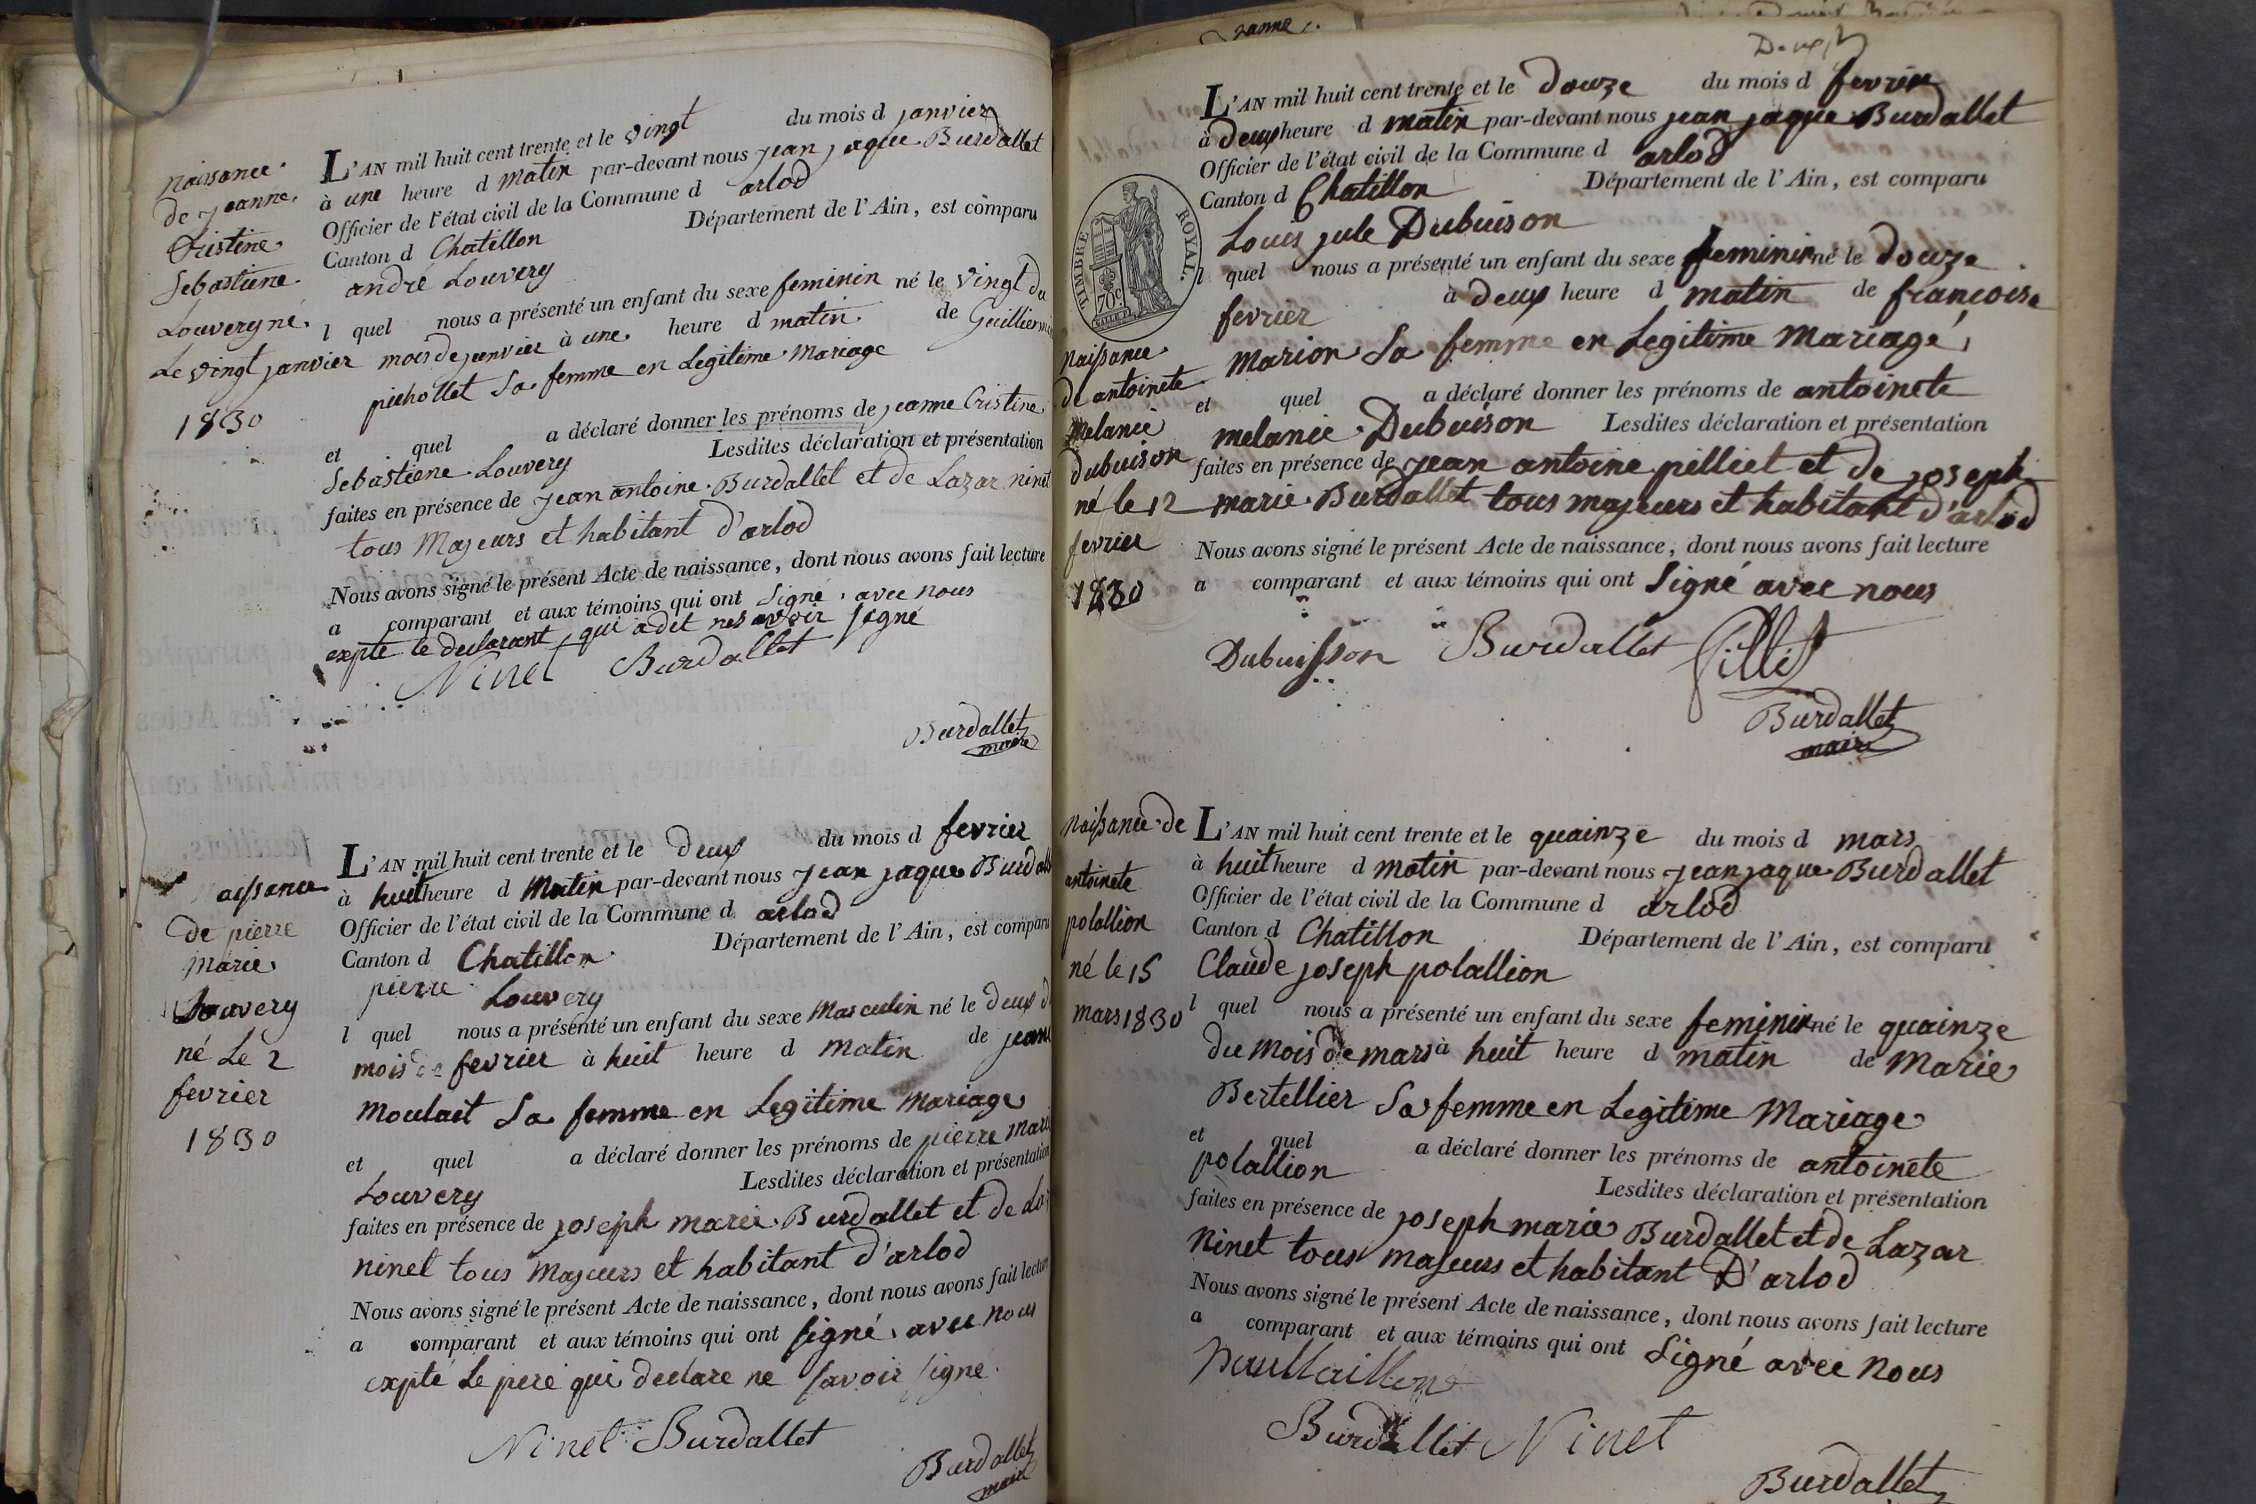 naissance
de jeanne
Cristine
Sebastiene
Louvery né
Le vingt janvier
1830
L'AN mil huit cent trente et le vingt du mois d janvier
à une heure d matin par-devant nous jean jaque Burdallet
Officier de l'état civil de la Commune d arlod
Canton d Chatillon Département de l'Ain, est comparu
andré Louvery
l quel nous a présenté un enfant du sexe feminin né le vingt du
mois de janvier à une heure d matin de
pichollet Sa femme en Legitime Mariage
et quel a déclaré donner les prénoms de jeanne Cristine
Sebastiene Louvery Lesdites déclaration et présentation
faites en présence de jean antoine Burdallet et de Lazar ninet
tous Majeurs et habitant d'arlod
Nous avons signé le présent Acte de naissance, dont nous avons fait lecture
a comparant et aux témoins qui ont Signé avec nous
expté le declarant qui a dit ne savoir signé
Ninet Burdallet
Burdallet
maire
aissance
de pierre
marie
Louvery
né Le 2
fevrier
1830
L'AN mil huit cent trente et le deux du mois d fevrier
à huit heure d Matin par-devant nous jean jaque Burdalle
Officier de l'état civil de la Commune d arlod
Canton d Chatillon Département de l'Ain, est comparu
pierre Louvery
l quel nous a présenté un enfant du sexe Masculin né le deux d
mois de fevrier à huit heure d matin de jeanne
Moulait Sa femme en Legitime Mariage
et quel a déclaré donner les prénoms de pierre Marie
Louvery Lesdites déclaration et présentation
faites en présence de joseph marie Burdallet et de
ninet tous Majeurs et habitant d'arlod
Nous avons signé le présent Acte de naissance, dont nous avons fait lecture
a comparant et aux témoins qui ont signé avec nous
expté Le pere qui declare ne savoir signé
Ninet Burdallet
Burdallet
maire
TIMBRE ROYAL.
70c
naissance
de antoinete
Melanie
dubuison
né le 12
fevrier
1830
L'AN mil huit cent trente et le douze du mois d fevrier
à deux heure d matin par-devant nous jean jaque Burdallet
Officier de l'état civil de la Commune d arlod
Canton d Chatillon Département de l'Ain, est comparu
Louis jule Dubuison
l quel nous a présenté un enfant du sexe feminin né le douze
fevrier à deux heure d matin de françoise
marion Sa femme en Legitime Mariage
et quel a déclaré donner les prénoms de antoinete
melanie Dubuison Lesdites déclaration et présentation
faites en présence de jean antoine pilliet et de joseph
marie Burdallet tous majeurs et habitant d'arlod
Nous avons signé le présent Acte de naissance, dont nous avons fait lecture
a comparant et aux témoins qui ont Signé avec nous
Dubuisson Burdallet
Burdallet
maire
naissance de
antoinete
polallion
né le 15
mars 1830
L'AN mil huit cent trente et le quainze du mois d mars
à huit heure d matin par-devant nous jean jaque Burdallet
Officier de l'état civil de la Commune d arlod
Canton d Chatillon Département de l'Ain, est comparu
Claude joseph polallion
l quel nous a présenté un enfant du sexe feminin né le quainze
du mois de mars à huit heure d matin de Marie
Bertellier Sa femme en Legitime Mariage
et quel a déclaré donner les prénoms de antoinete
polallion Lesdites déclaration et présentation
faites en présence de joseph marie Burdallet et de Lazar
ninet tous majeurs et habitant D'arlod
Nous avons signé le présent Acte de naissance, dont nous avons fait lecture
a comparant et aux témoins qui ont Signé avec nous
Burdallet Ninet
Burdallet